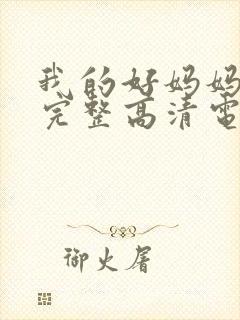 我的好妈妈
完整高清电
御火屠